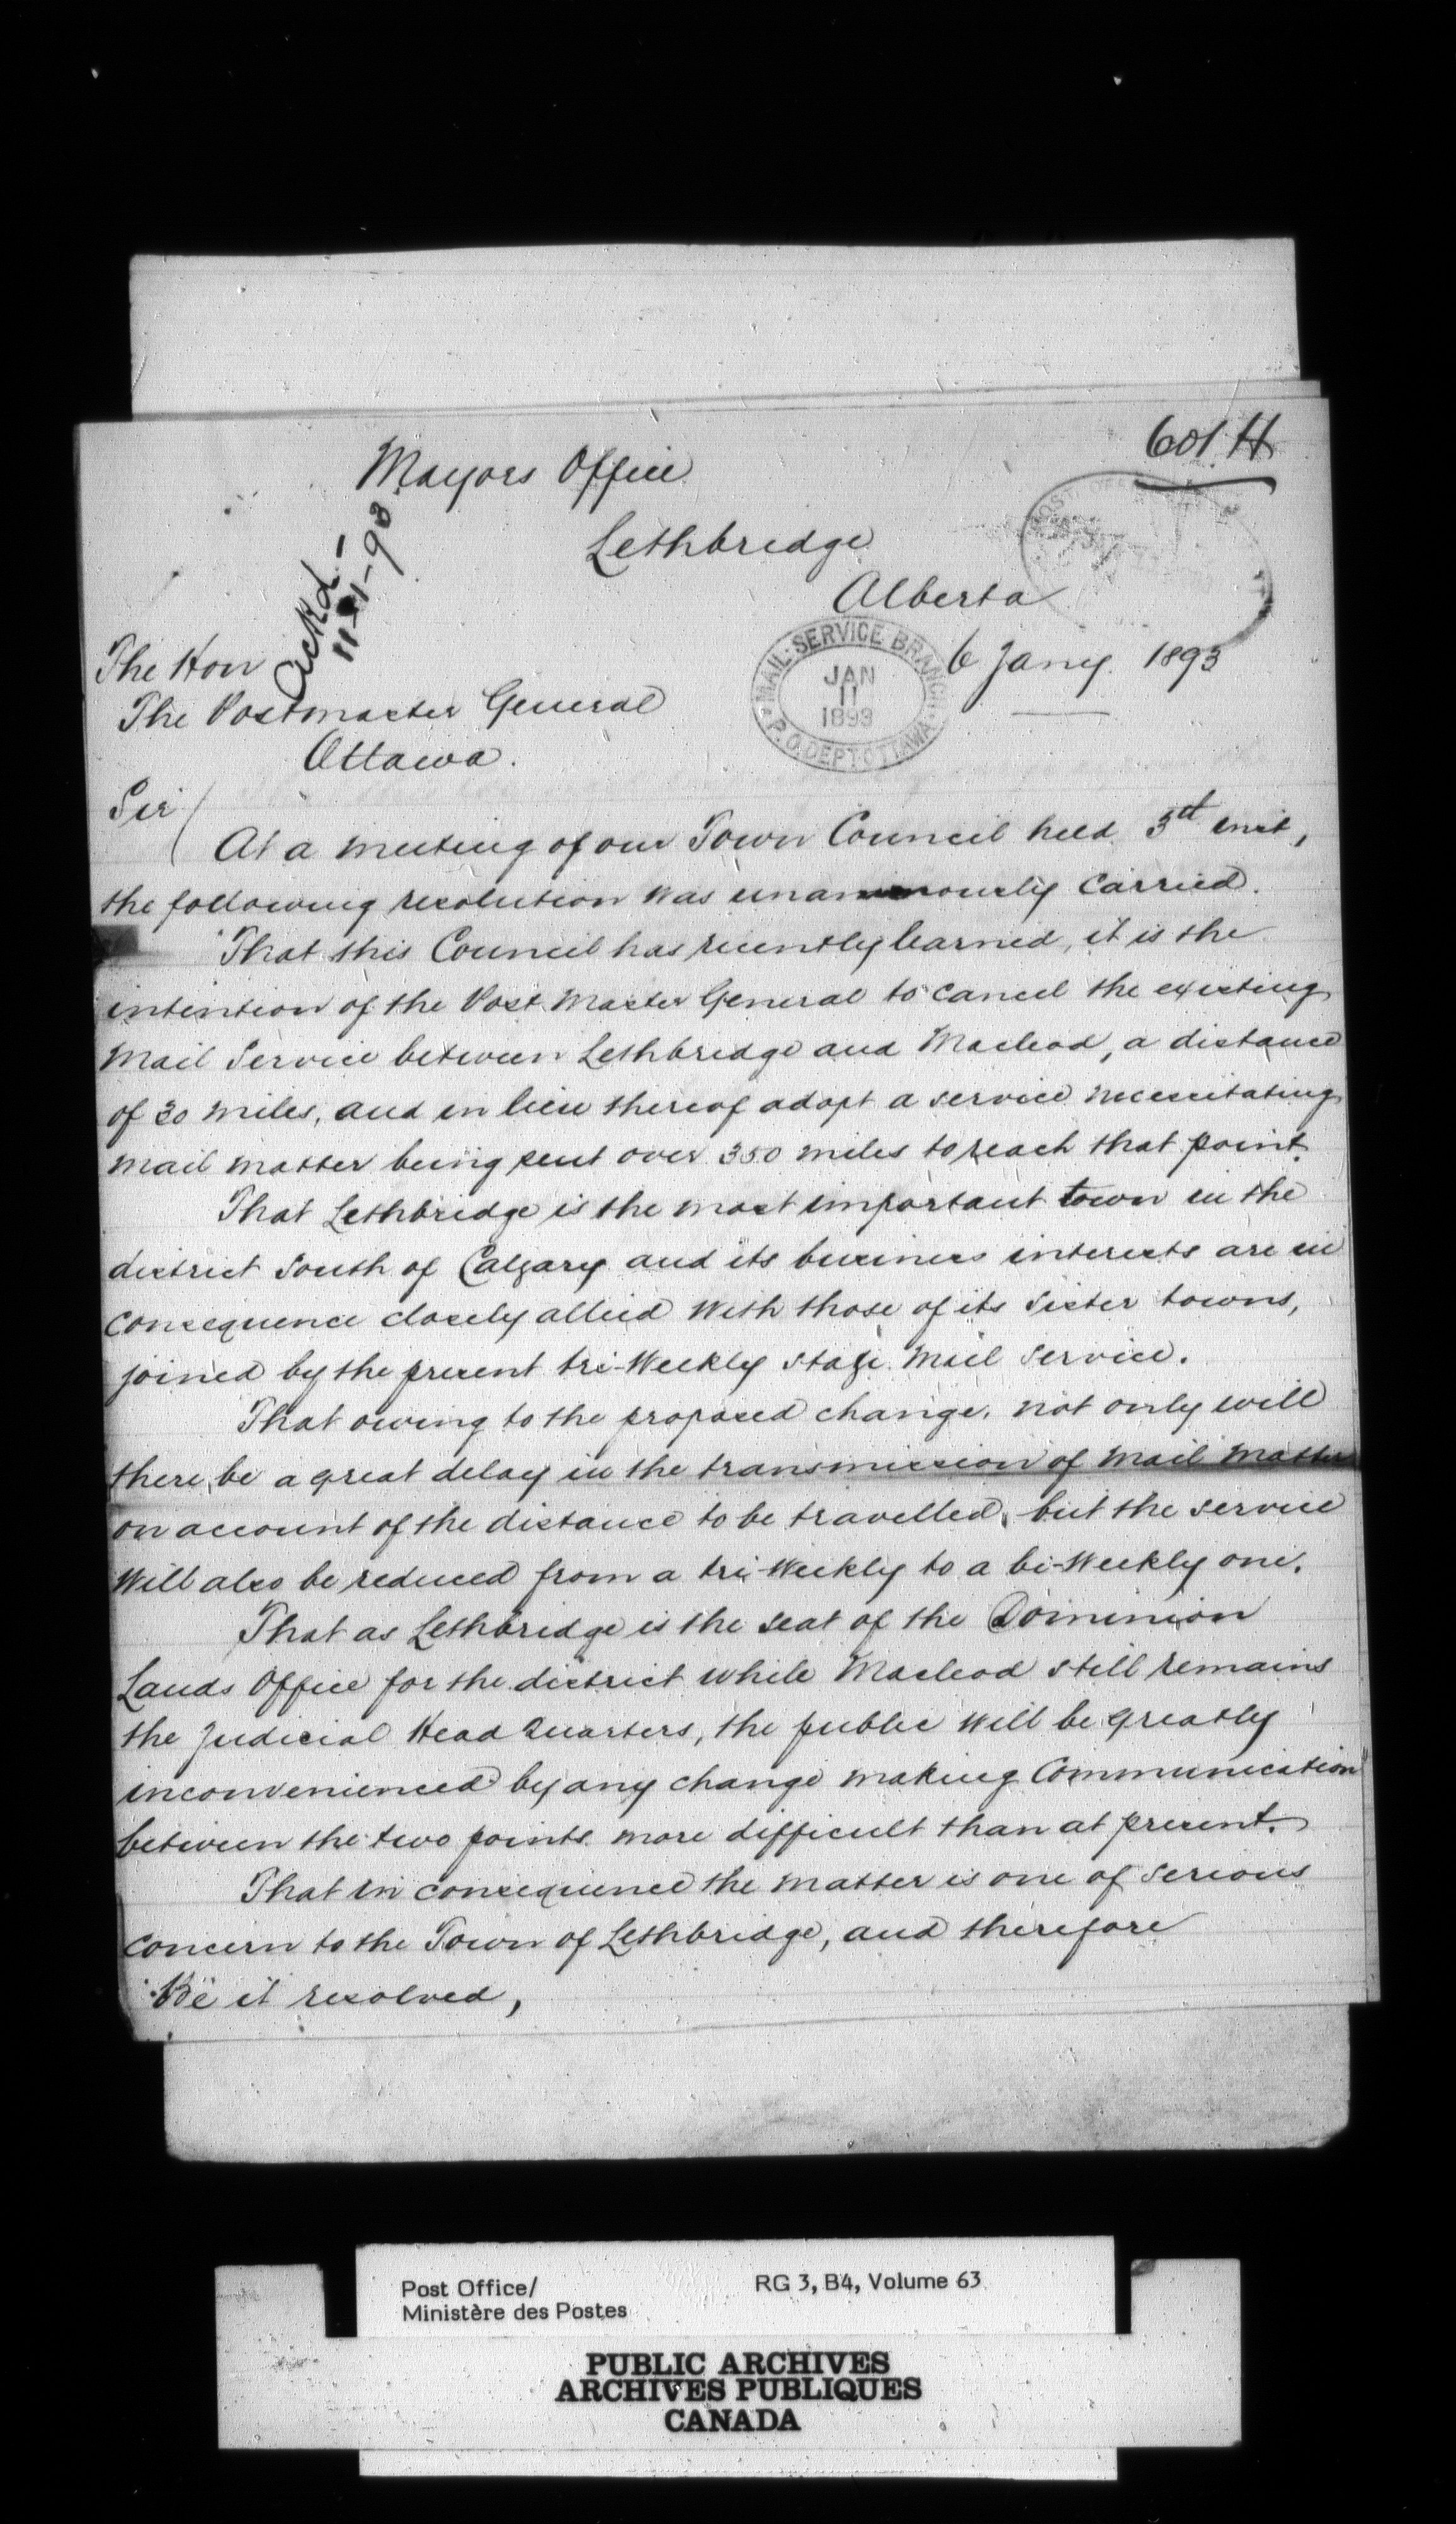 601 H
Mayors Office
Lethbridge
Alberta
6 Jany. 1893
Ackd -
11-1-93
MAIL SERVICE BRANCH
JAN
11
1893
P.O. DEPT. OTTAWA
The Hon
The Postmaster General
Ottawa.
Sir
At a meeting of our Town Council held inst,
the following resolution was unanimously carried.
That this Council has recently learned, it is the
intention of the Post Master General to cancel the existing
Mail Service between Lethbridge and Macleod, a distance
of 30 miles, and in lieu thereof adopt a service necessitating
mail matter being sent over 350 miles to reach that point.
That Lethbridge is the most important town in the
district South of Calgary and its business interests are in
consequence closely allied with those of its Sister towns,
joined by the present tri-Weekly stage Mail Service.
That owing to the proposed change, not only will
there be a great delay in the transmission of Mail Matter
on account of the distance to be travelled, but the service
Will also be reduced from a tri-Weekly to a bi-Weekly one.
That as Lethbridge is the seat of the Dominion
Lands Office for the district while Macleod still remains
the Judicial Head Quarters, the public will be greatly
inconvenienced by any change making Communication
between the two points more difficult than at present.
That in consequence the matter is one of serious
concern to the Town of Lethbridge, and therefore
Be it resolved,
Post Office/
Ministère des Postes
RG 3, B4, Volume 63
PUBLIC ARCHIVES
ARCHIVES PUBLIQUES
CANADA